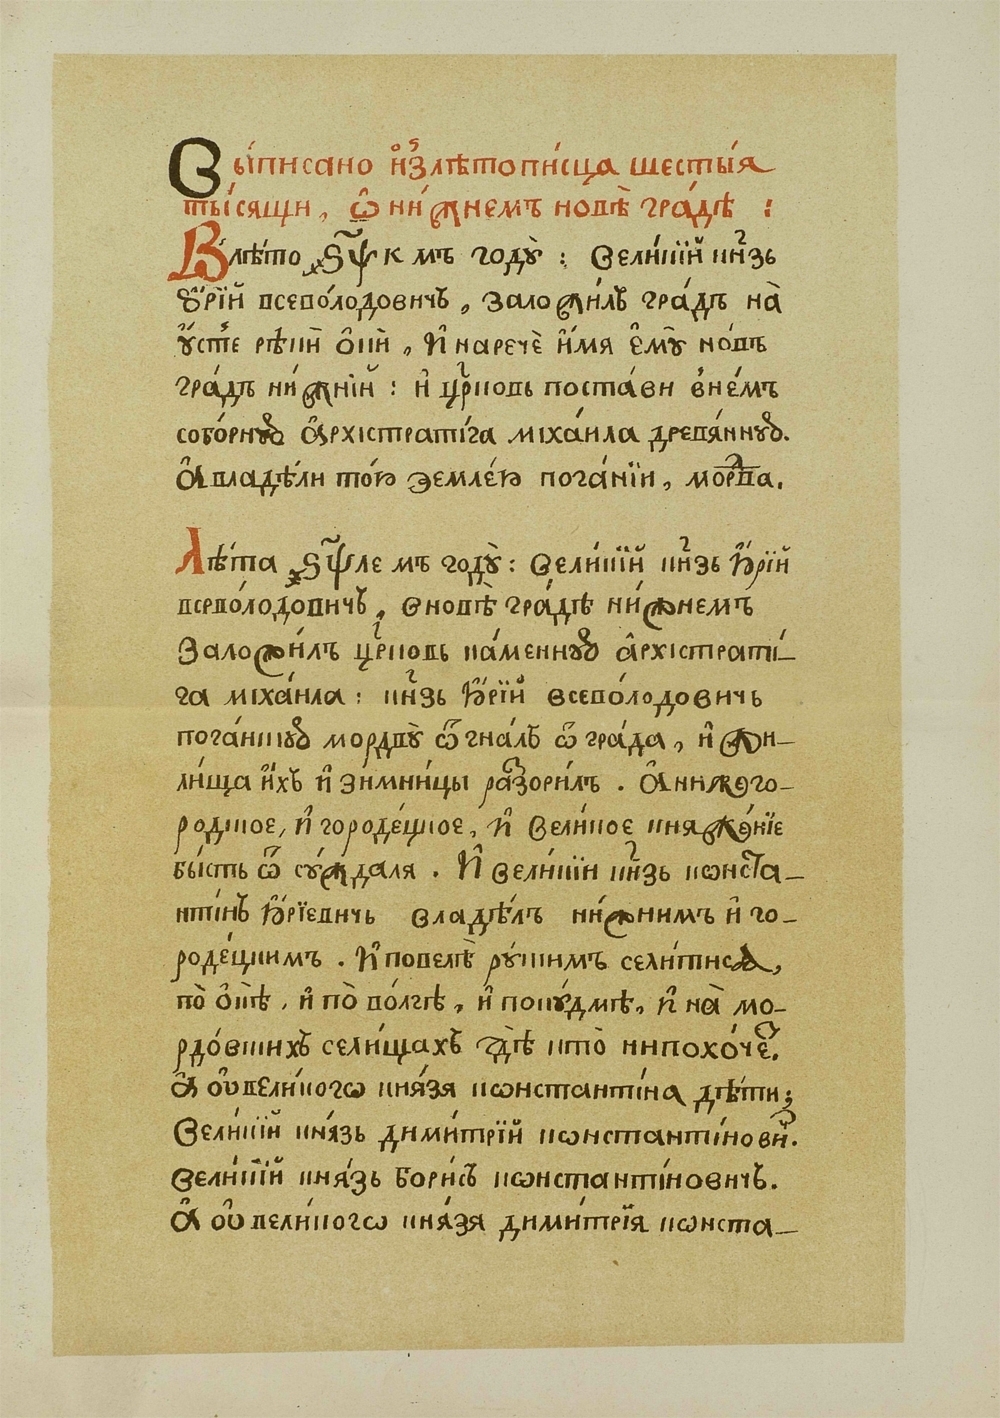 Выписано и҆злѣтописца шесты́я
ты́сящи, ѡ҆ ни́жнемъ новѣ̀ гра́дѣ :
Влѣ́то ҂ѕ҃ѱк мъ году̀ : вели́кїй кн҃зь
ю҆́рїй всево́лодовичъ, заложи́лъ гра́дъ на̀
у҆́стїе рѣки̾ о҆ки̾, и҆ наречѐ и҆́мя е҆му̀ но́въ
гра́дъ ни́жнїй : и҆ цр҃ковь поста́ви внем́ъ
собо́рнꙋю а҆рхїстрати́га мїха́ила древя́ннꙋю.
А҆ владѣ́ли то́ю земле́ю пога́нїи, мордва.

Лѣ́та ҂ѕ҃ѱле мъ году̀ : вели́кїй кн҃зь ю҆́рїй
всево́лодовичъ, вновѣ̀ гра́дѣ ни́жнемъ
заложи́лъ цр҃ковь ка́меннꙋю а҆рхїстрати́-
га мїха́ила : кн҃зь ю҆́рїй всево́лодовичь
пога́нꙋю мордву̀ ѿгна́лъ ѿ гра́да, и҆ жи-
ли́ща и҆́хъ и҆ зи́мни́цы разори́лъ . А҆ нижего-
родское, и҆ городе́цкое, и҆ вели́кое княже́нїе
бы́сть ѿ су́ждаля . И҆ вели́кїи кн҃зь кѡнста-
нтінъ ю҆́рїевичь владѣ́лъ ни́жнимъ и҆ го-
роде́цкимъ . И҆ повелѣ̀ ру́скимъ сели́тися,
по̀ о҆кѣ̀, и҆ по̀ во́лгѣ, и҆ поку́дмѣ, и҆ на̀ мо-
рдо́вскихъ сели́щахъ гдѣ̀ кто̀ нипохо́че.
А҆ оу҆вели́когѡ кня́зя кѡнстантíна дѣ́ти ;
Вели́кїй кня́зь дими́трїй кѡнстантíнови.
Вели́кїй кня́зь бори́съ кѡнстантíновичъ.
А҆ оу҆ вели́когѡ кня́зя дими́трїя кѡнста-